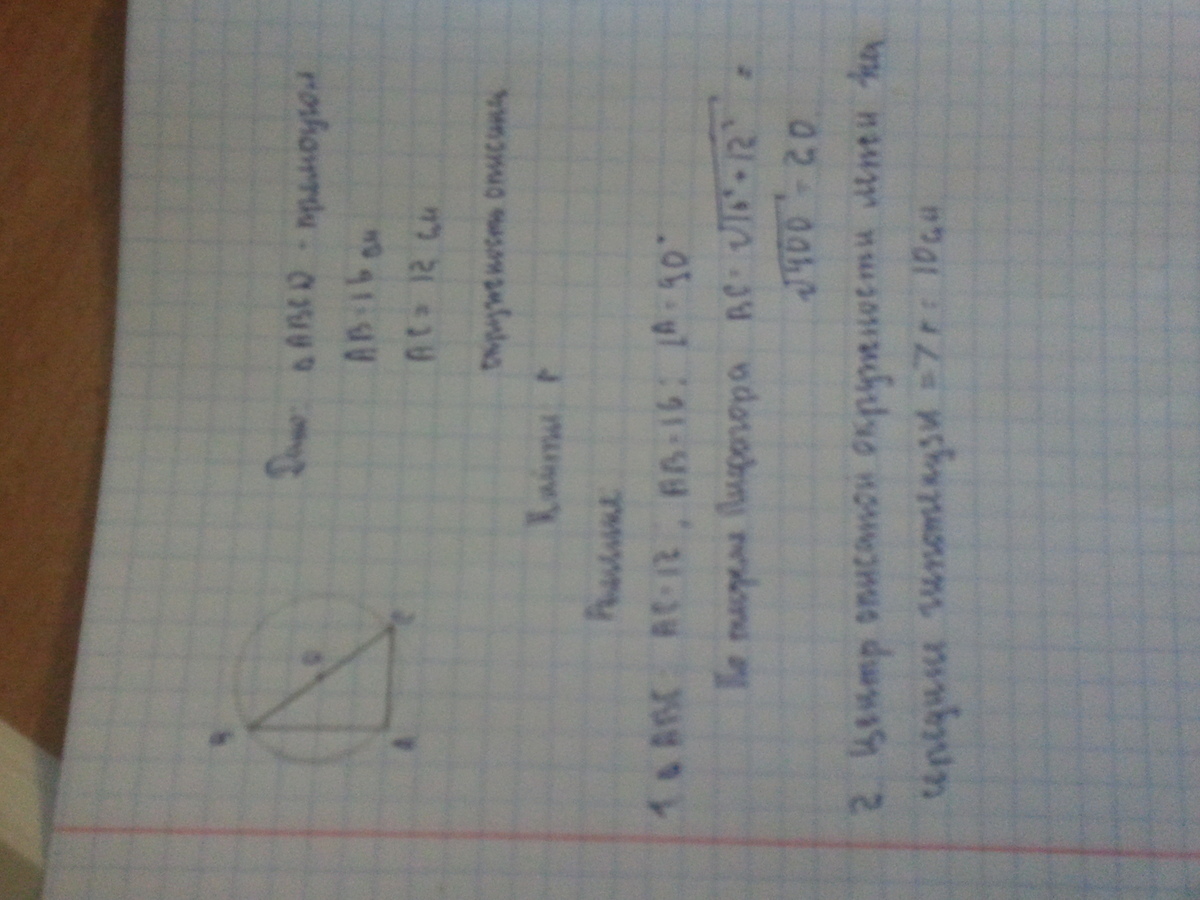 B
O
A
C
Дано: △ABCD - прямоугол
AB=16 см
AC = 12 см
окружность описана
Найти r
Решение
1 △ ABC: AC=12; AB=16; ∠A=90°
По теореме Пифагора BC=√16²+12² =
√400 = 20
2. Центр описаной окружности лежит на
середине гипотенузы => r = 10 см